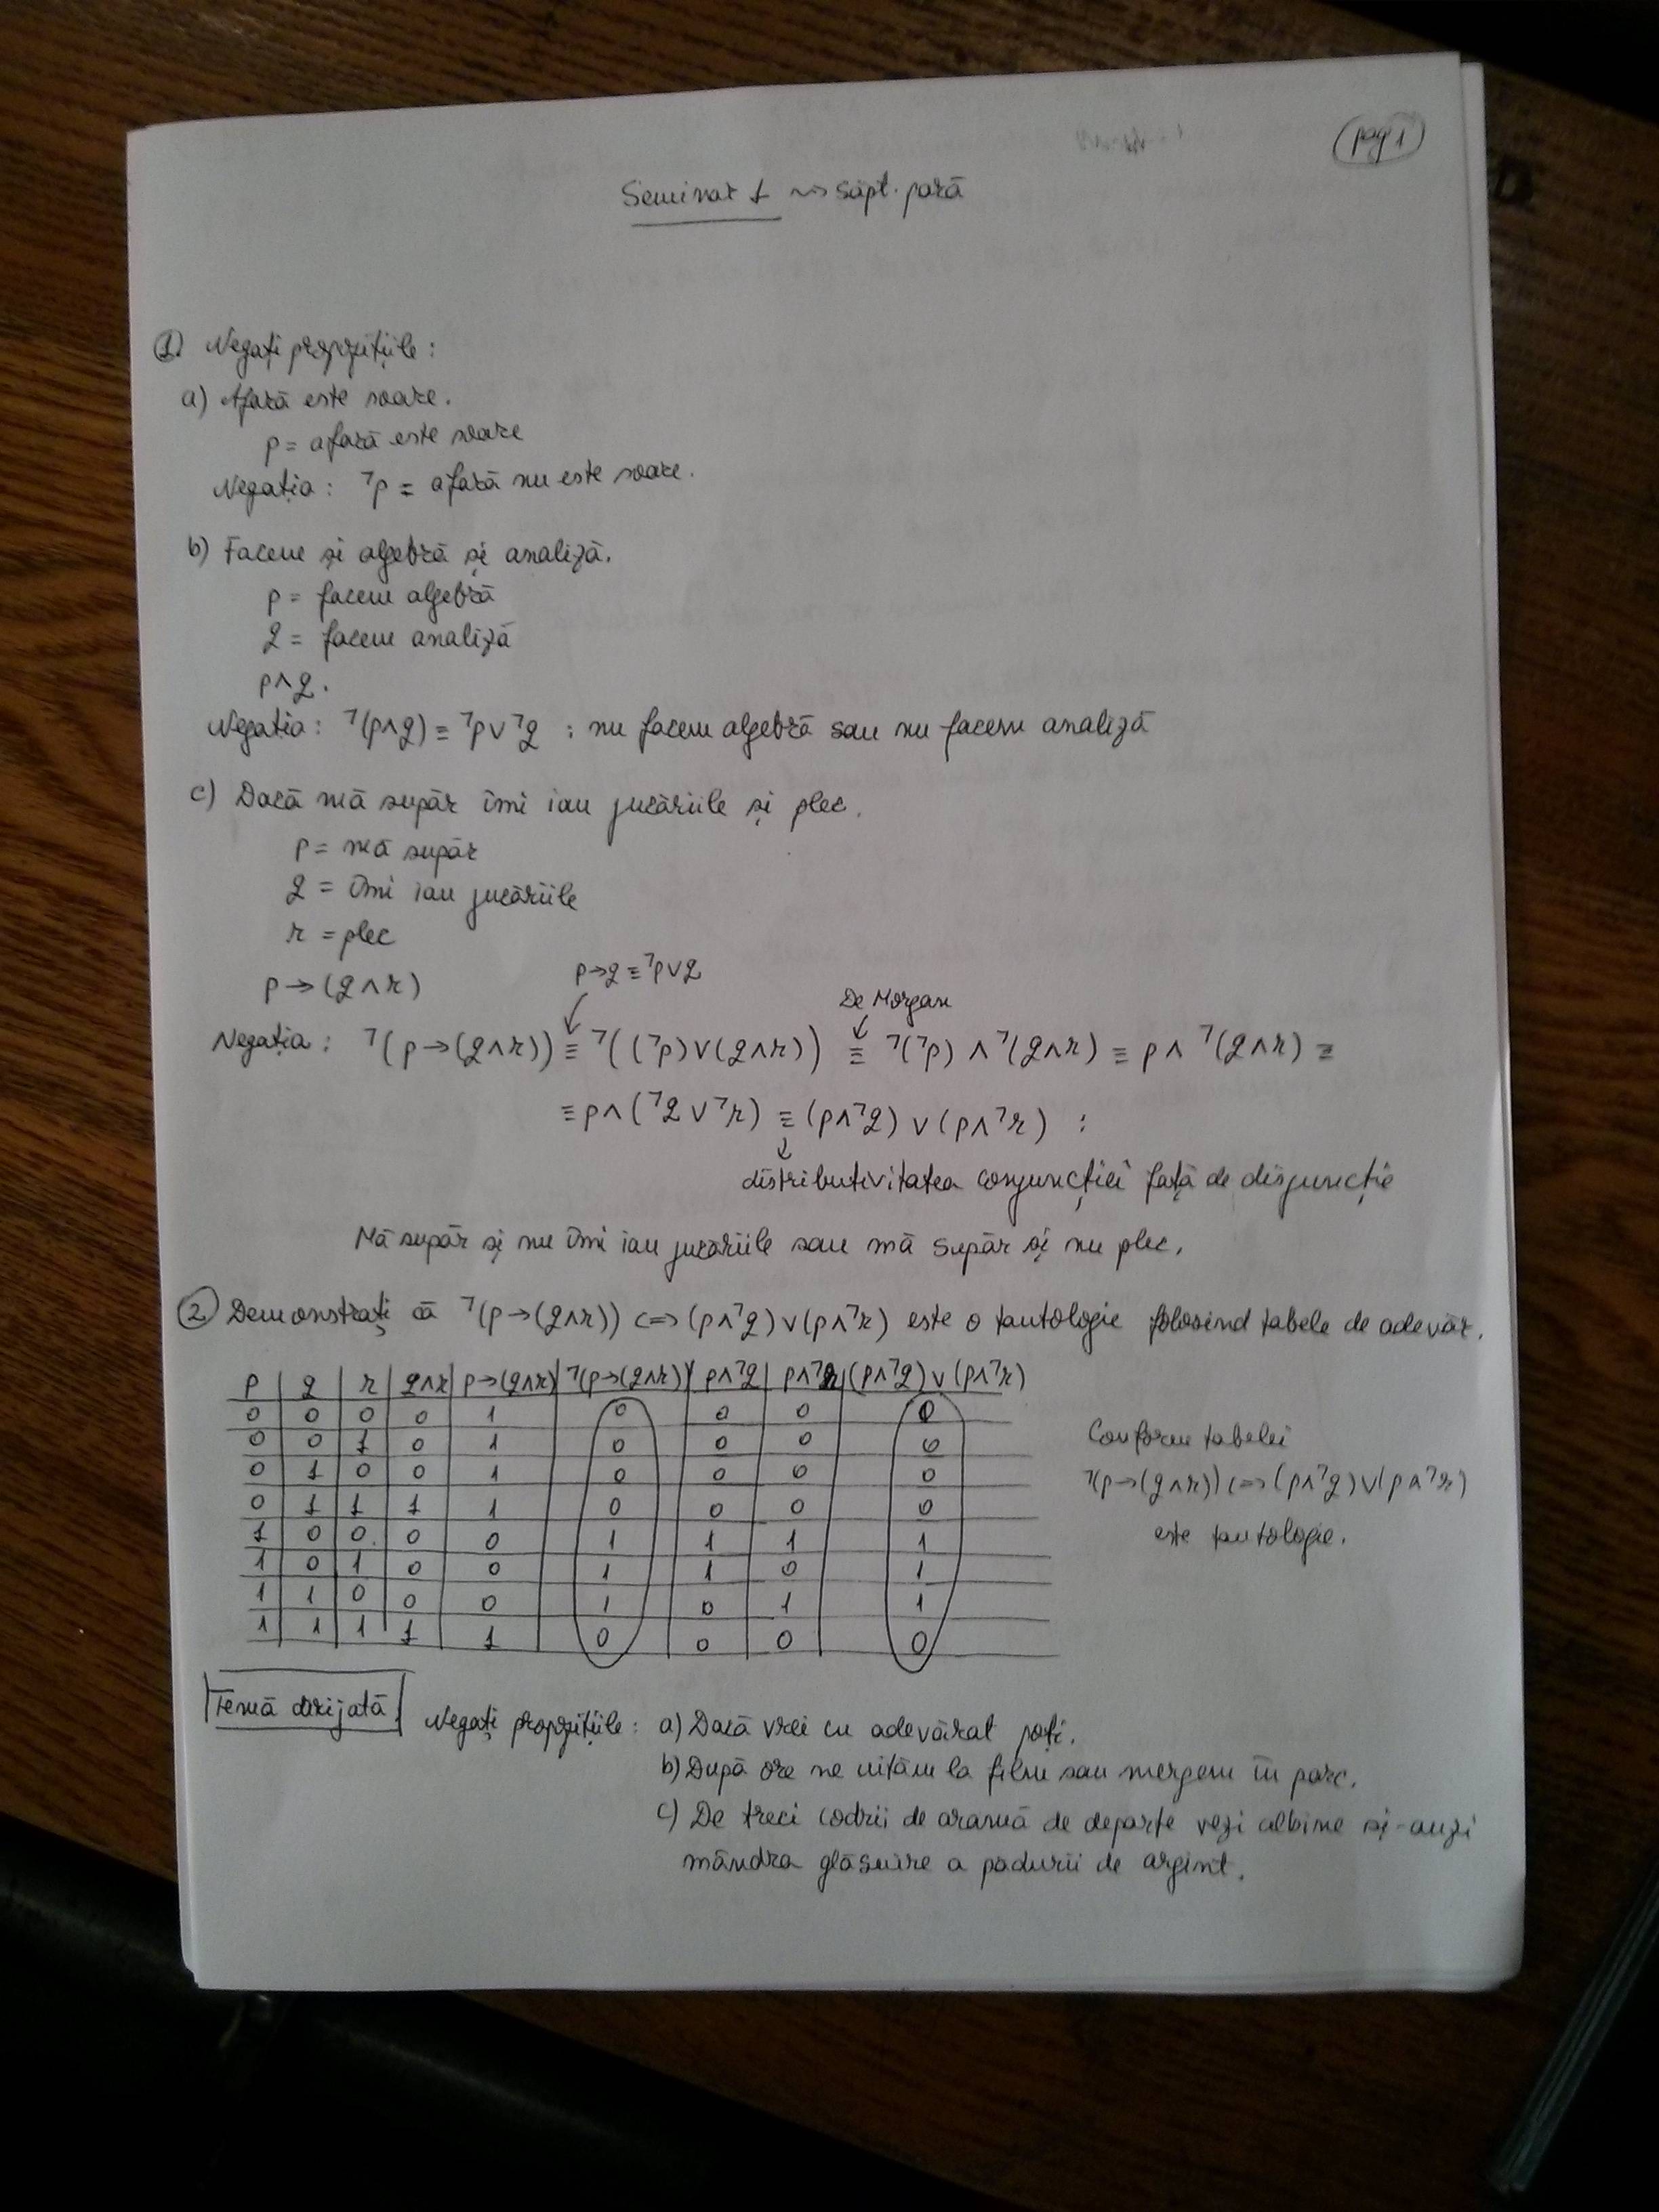 pag 1
Seminar 1 ~> săpt. pară
1) Negați propozițiile:
a) Afară este soare.
p = afară este soare
Negația: ⌉p = afară nu este soare.
b) Facem și algebră și analiză.
p = facem algebră
q = facem analiză
p∧q.
Negația: ⌉(p∧q) ≡ ⌉p∨⌉q : nu facem algebră sau nu facem analiză
c) Dacă mă supăr îmi iau jucăriile și plec.
p = mă supăr
q = îmi iau jucăriile
r = plec
p→q ≡ ⌉p∨q
p→(q∧r)
De Morgan
Negația: ⌉(p→(q∧r)) ≡ ⌉((⌉p)∨(q∧r)) ≡ ⌉(⌉p) ∧ ⌉(q∧r) ≡ p∧ ⌉(q∧r) ≡
≡ p∧(⌉q∨⌉r) ≡ (p∧⌉q) ∨ (p∧⌉r) :
distributivitatea conjuncției față de disjuncție
Mă supăr și nu îmi iau jucăriile sau mă supăr și nu plec.
2) Demonstrați că ⌉(p→(q∧r)) <=> (p∧⌉q)∨(p∧⌉r) este o tautologie folosind tabele de adevăr.
p | q | r | q∧r | p→(q∧r) | ⌉(p→(q∧r)) | p∧⌉q | p∧⌉r | (p∧⌉q)∨(p∧⌉r)
0 0 0 0 1 0 0 0 0
0 0 1 0 1 0 0 0 0
0 1 0 0 1 0 0 0 0
0 1 1 1 1 0 0 0 0
1 0 0 0 0 1 1 1 1
1 0 1 0 0 1 1 0 1
1 1 0 0 0 1 0 1 1
1 1 1 1 1 0 0 0 0
Conform tabelei
⌉(p→(q∧r)) <=> (p∧⌉q)∨(p∧⌉r)
este tautologie.
Temă dirijată Negați propozițiile: a) Dacă vrei cu adevărat poți.
b) După ore ne uităm la film sau mergem în parc.
c) De treci codrii de aramă de departe vezi albine și-auzi
mândra glăsuire a pădurii de argint.